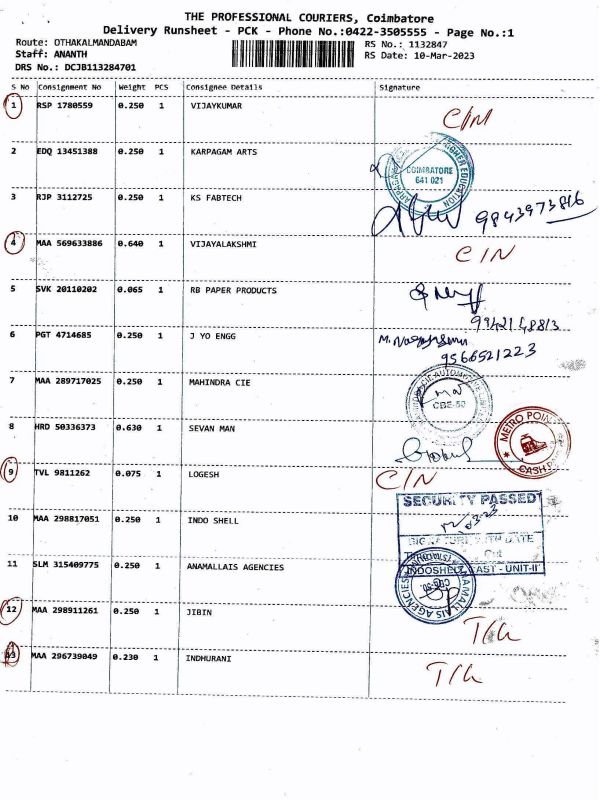 THE PROFESSIONAL COURIERS, Coimbatore
Delivery Runsheet - PCK - Phone No.:0422-3505555 - Page No.:1
Route: OTHAKALMANDABAM
RS No.: 1132847
Staff: ANANTH
RS Date: 10-Mar-2023
DRS No.: DCJB113284701
S No Consignment No Weight PCS Consignee Details Signature
1 RSP 1780559 0.250 1 VIJAYKUMAR
2 EDQ 13451388 0.250 1 KARPAGAM ARTS
COIMBATORE
641 021
3 RJP 3112725 0.250 1 KS FABTECH 9843973816
4 MAA 569633886 0.640 1 VIJAYALAKSHMI C/N
5 SVK 20110202 0.065 1 RB PAPER PRODUCTS
6 PGT 4714685 0.250 1 J YO ENGG
9566521223
7 MAA 289717025 0.250 1 MAHINDRA CIE
CBE-50
8 HRD 50336373 0.630 1 SEVAN MAN
METRO POIN
CASH
9 TVL 9811262 0.075 1 LOGESH C/N
SECURITY PASSED
10 MAA 298817051 0.250 1 INDO SHELL
SIGNATURE WITH DATE
Out
INDOSHELL CAST - UNIT-II
11 SLM 315409775 0.250 1 ANAMALLAIS AGENCIES
12 MAA 298911261 0.250 1 JIBIN
13 MAA 296739049 0.230 1 INDHURANI